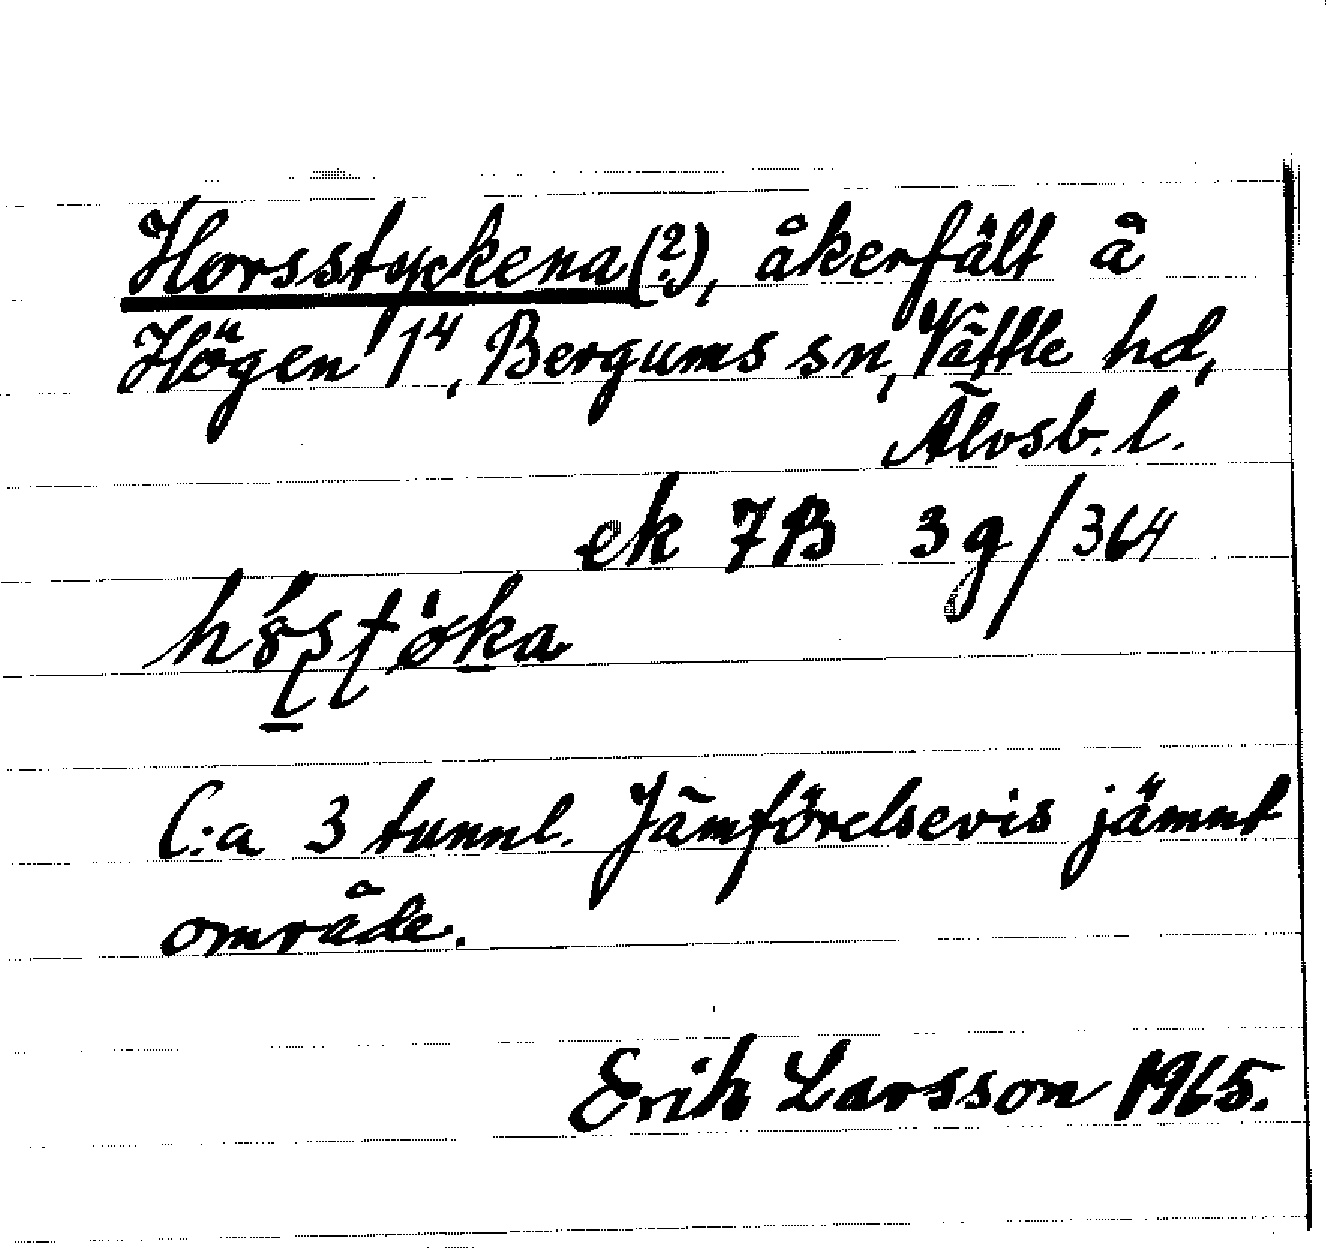 Horsstyckena (?), åkerfält å
Högen 1⁴, Bergums sn, Vättle hd,
Älvsb. l.
ek 7B 3g/364
C:a 3 tunnl. Jämförelsevis jämnt
område.
Erik Larsson 1965.